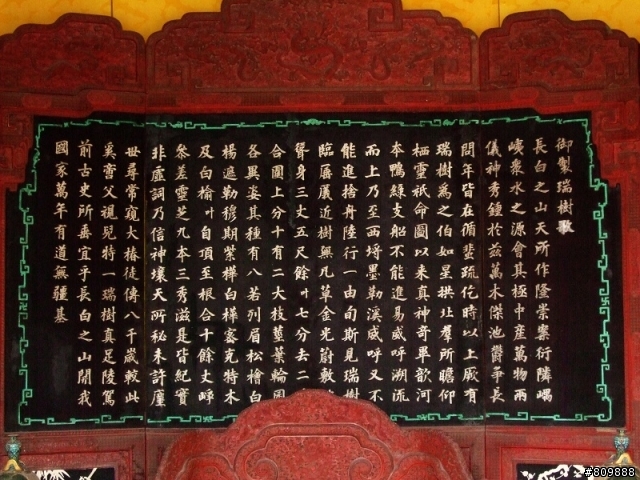 御製瑞樹歌
長白之山天所作隆崇案衍隣嵎
峓衆水之源會其極中産萬物兩
儀神秀鍾於茲萬木傑池鬱爭長
問年皆在循蜚疏仡時以上厥有
瑞樹爲之伯如星拱北羣所瞻仰
栖靈祇命圖以來真神奇單歆河
本鴨緑支船不能進易威呼溯流
而上乃至西埓墨勒溪威呼又不
能進捨舟陸行一由旬斯見瑞樹
臨屏近樹無凡草金光尉敷
聳身三丈五尺餘叶七分去二
合圍上分十有二大枝莖葉輪囷
各異姿其種有八若列眉松檜白
楊遮勒穆期紫樺白樺窩克特木
及白榆叶自頂至根合十餘丈崢
參差靈芝九本三秀滋是皆紀實
非虛詞乃信神壤天所秘未許庫
世尋常窺大椿徒傳八千歲較此
奚啻父視兒特一瑞樹真足陵駕
前古史所垂宜乎長白之山開我
國家萬年有道無疆基
#809888